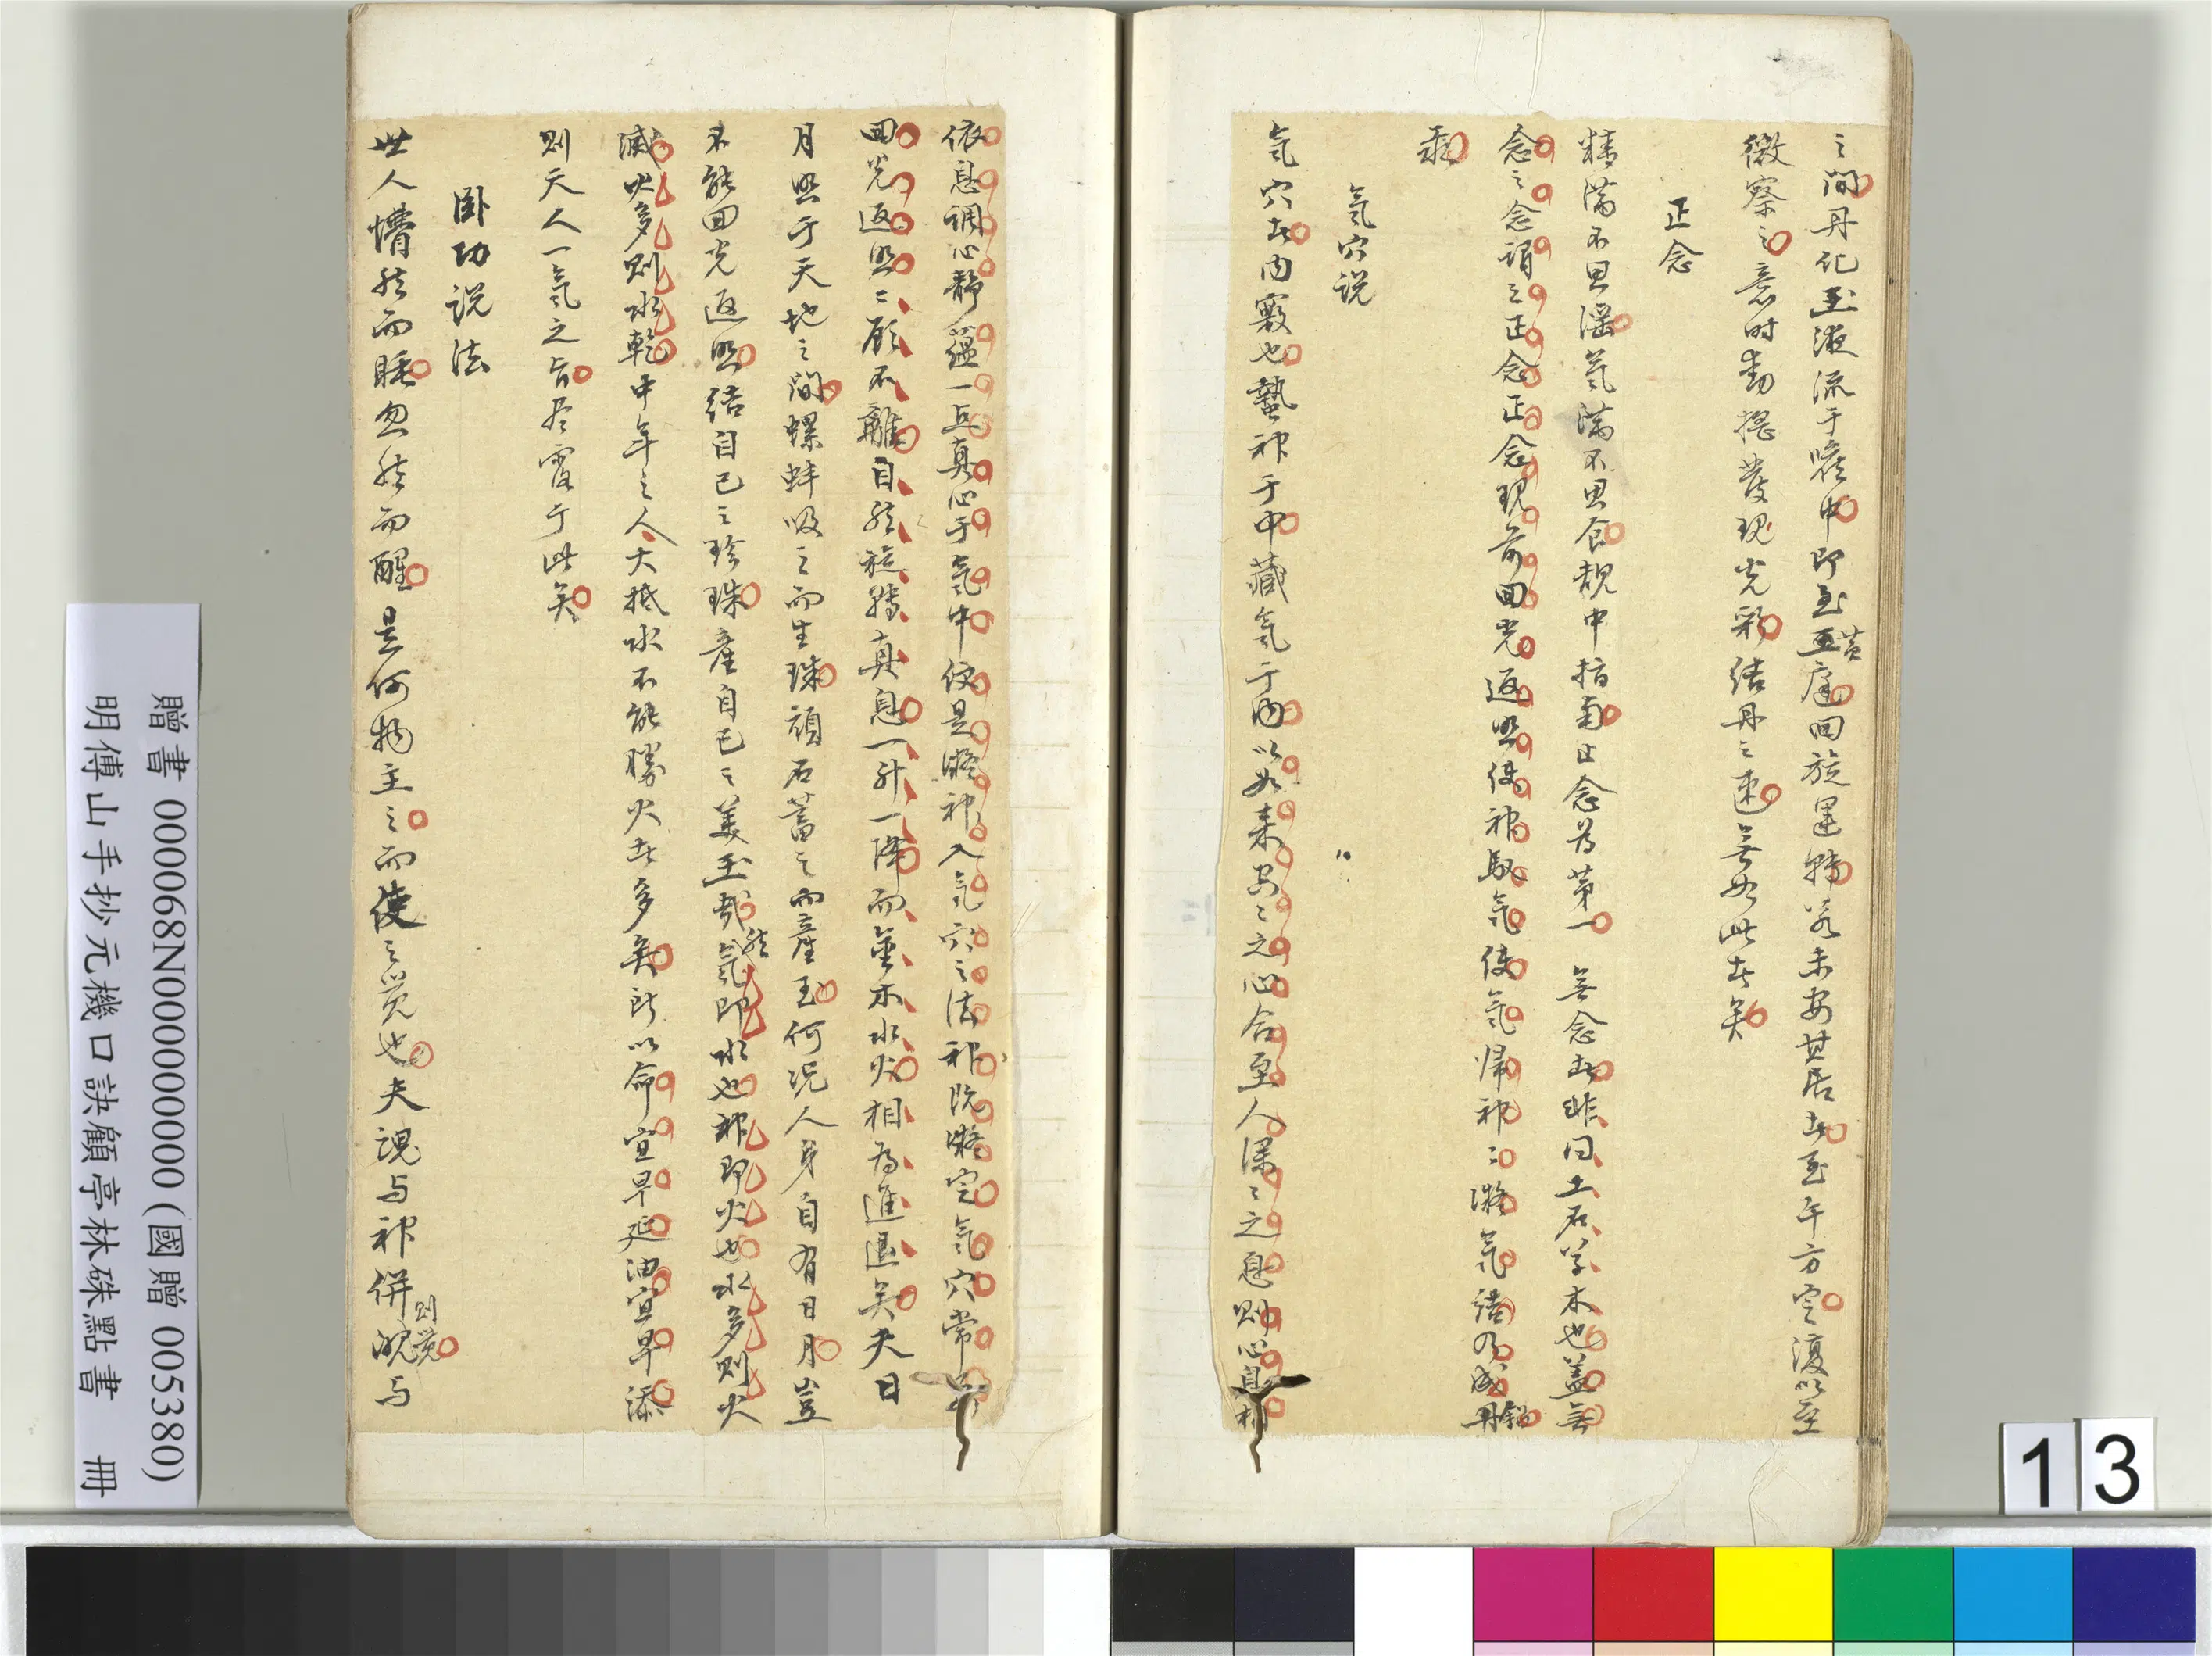 之間丹化玉液流于喉中即至玉黃庭回旋運轉若未安其居者至午方定復以至
微察之意時動搖發現光彩結丹之速無如此者矣
正念
精滿不思淫氣滿不思食靜中指南止念為第一無念者非同土石草木也蓋無
念之念謂之正念正念現前回光返照使神馭氣使氣歸神〻凝氣結乃成丹鉛
汞
氣穴說
氣穴者內竅也蟄神于中藏氣于內以如來空〻之心合至人深〻之息則心息相
依息調心靜蘊一點真心于氣中便是凝神入氣穴之法神既凝定氣穴常要
回光返照〻顧不離自然旋轉真息一升一降而金木水火相為進退矣夫日
月照于天地之間螺蚌吸之而生珠頑石蓄之而產玉何況人身自有日月豈
不能回光返照結自己之珍珠產自己之美玉哉然氣即水也神即火也水多則火
滅火多則水乾中年之人大抵水不能勝火者多矣所以命宜早延油宜早添
則天人一氣之旨尽露于此矣
臥功說法
世人懵然而睡忽然而醒是何物主之而使之覺也夫魂与神併則覺魄与
贈書 000068N000000000 (國贈 005380)
明傅山手抄元機口訣顧亭林硃點書 冊
13